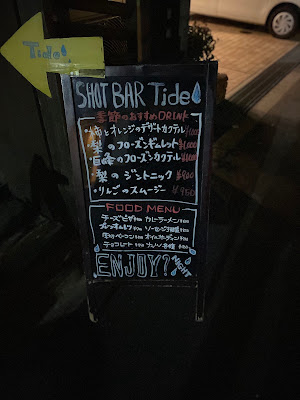 Tide
SHOT BAR Tide
季節のおすすめDRINK
・柿とオレンジのデザートカクテル
・梨のフローズンギムレット ¥1,000
・巨峰のフローズンカクテル
・梨のジントニック ¥900
・りんごのスムージー ¥950
FOOD MENU
チーズピザ カレーラーメン
ソーセージ
オイルサーディン
チョコレート
ENJOY!
NIGHT